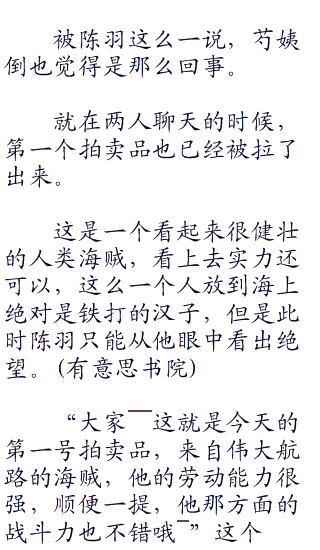 被陈羽这么一说，芍姨
倒也觉得是那么回事。
就在两人聊天的时候，
第一个拍卖品也已经被拉了
出来。
这是一个看起来很健壮
的人类海贼，看上去实力还
可以，这么一个人放到海上
绝对是铁打的汉子，但是此
时陈羽只能从他眼中看出绝
望。(有意思书院)
“大家￣￣这就是今天的
第一号拍卖品，来自伟大航
路的海贼，他的劳动能力很
强，顺便一提，他那方面的
战斗力也不错哦￣”这个